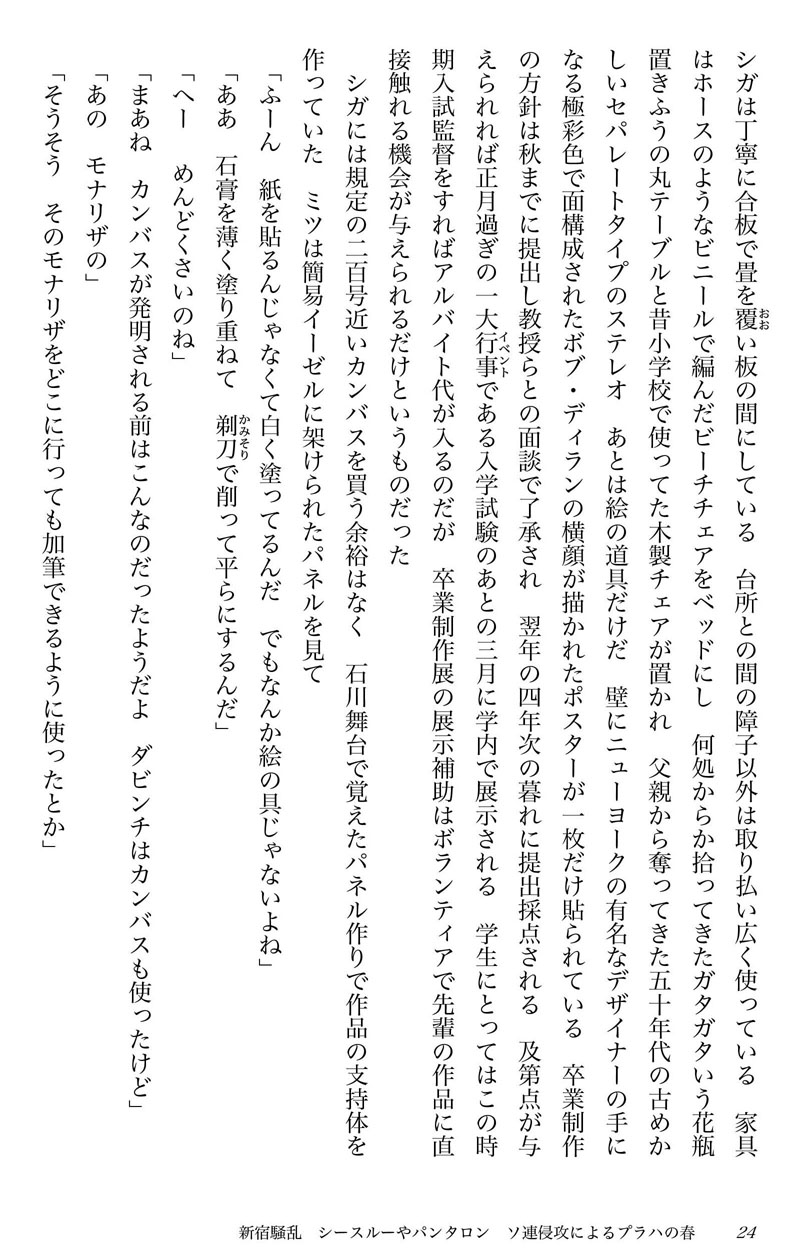 シガは丁寧に合板で畳を覆い板の間にしている　台所との間の障子以外は取り払い広く使っている　家具
はホースのようなビニールで編んだビーチチェアをベッドにし　何処からか拾ってきたガタガタいう花瓶
置きふうの丸テーブルと昔小学校で使ってた木製チェアが置かれ　父親から奪ってきた五十年代の古めか
しいセパレートタイプのステレオ　あとは絵の道具だけだ　壁にニューヨークの有名なデザイナーの手に
なる極彩色で面構成されたボブ・ディランの横顔が描かれたポスターが一枚だけ貼られている　卒業制作
の方針は秋までに提出し教授らとの面談で了承され　翌年の四年次の暮れに提出採点される　及第点が与
えられれば正月過ぎの一大行事である入学試験のあとの三月に学内で展示される　学生にとってはこの時
期入試監督をすればアルバイト代が入るのだが　卒業制作展の展示補助はボランティアで先輩の作品に直
接触れる機会が与えられるだけというものだった
　シガには規定の二百号近いカンバスを買う余裕はなく　石川舞台で覚えたパネル作りで作品の支持体を
作っていた　ミツは簡易イーゼルに架けられたパネルを見て
「ふーん　紙を貼るんじゃなくて白く塗ってるんだ　でもなんか絵の具じゃないよね」
「ああ　石膏を薄く塗り重ねて　剃刀で削って平らにするんだ」
「へー　めんどくさいのね」
「まあね　カンバスが発明される前はこんなのだったようだよ　ダビンチはカンバスも使ったけど」
「あの　モナリザの」
「そうそう　そのモナリザをどこに行っても加筆できるように使ったとか」
おお
イベント
かみそり
新宿騒乱　シースルーやパンタロン　ソ連侵攻によるプラハの春
24